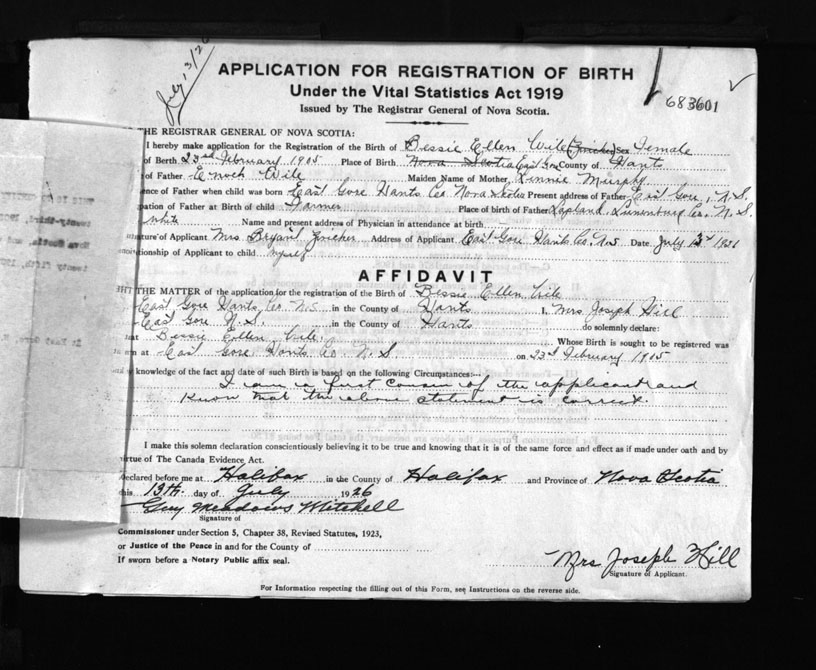 July 13/26
APPLICATION FOR REGISTRATION OF BIRTH
Under the Vital Statistics Act 1919
Issued by The Registrar General of Nova Scotia.
683601
THE REGISTRAR GENERAL OF NOVA SCOTIA:
I hereby make application for the Registration of the Birth of Bessie Ellen Wile Sex Female
of Birth 23rd February 1905 Place of Birth Nova Scotia East Gore County of Hants
of Father Enoch Wile Maiden Name of Mother Minnie Murphy
ence of Father when child was born East Gore Hants Co Nova Scotia Present address of Father East Gore, N. S.
pation of Father at Birth of child Farmer Place of Birth of Father Lapland, Lunenburg Co. N. S.
white Name and present address of Physician in attendance at birth
nature of Applicant Mrs Bryant Address of Applicant East Gore Hants Co. N.S Date July
ionship of Applicant to child myself
AFFIDAVIT
THE MATTER of the application for the registration of the Birth of Bessie Ellen Wile
East Gore Hants Co. N.S in the County of Hants I, Mrs Joseph Hill
East Gore N. S. in the County of Hants do solemnly declare:
at Bessie Ellen Wile Whose Birth is sought to be registered was
n at East Gore Hants Co. N. S on 23rd February 1905
knowledge of the fact and date of such Birth is based on the following Circumstances:—
I am a first cousin of the applicant and
know that the above statement is correct.
I make this solemn declaration conscientiously believing it to be true and knowing that it is of the same force and effect as if made under oath and by
irtue of The Canada Evidence Act.
eclared before me at Halifax in the County of Halifax and Province of Nova Scotia
his 13th. day of July 1926
Guy Meadows Mitchell
Signature of
Commissioner under Section 5, Chapter 38, Revised Statutes, 1923,
or Justice of the Peace in and for the County of
If sworn before a Notary Public affix seal.
Mrs. Joseph Hill
Signature of Applicant.
For Information respecting the filling out of this Form, see Instructions on the reverse side.